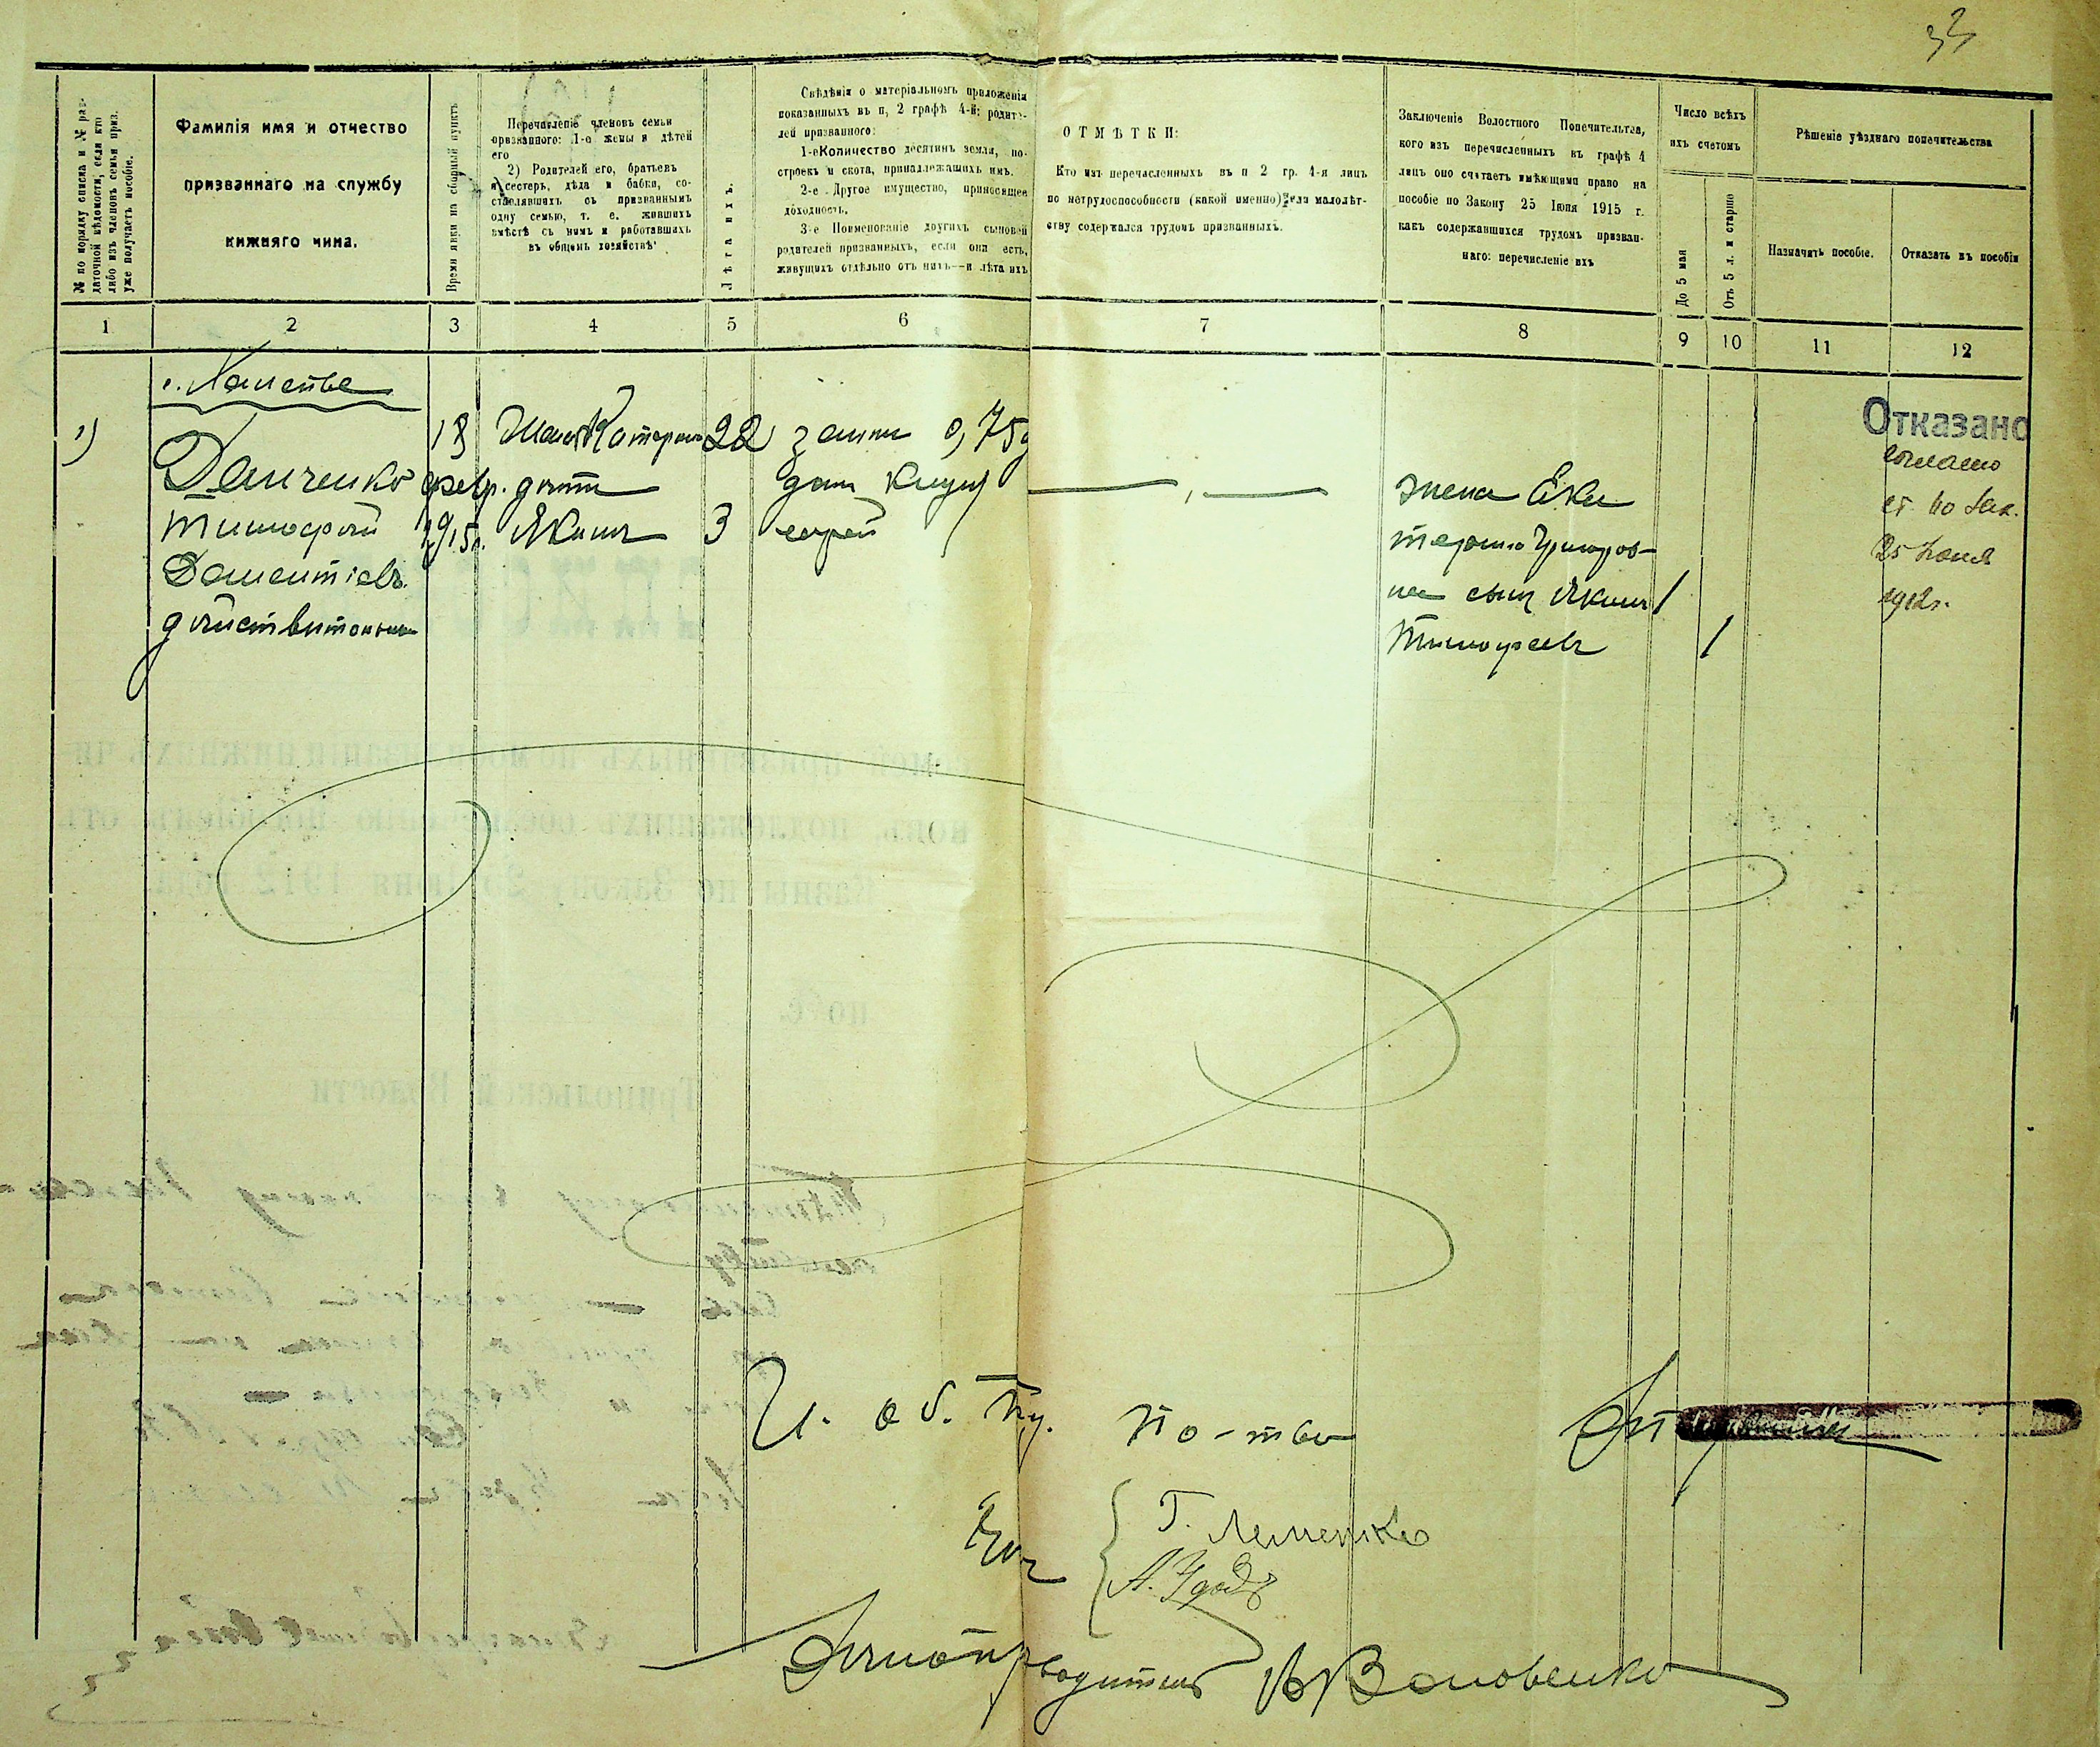 33
№ по порядку списка и № раз-
даточной вѣдомости, если кто
либо изъ членовъ семьи приз.
уже получаетъ пособіе.
Фамилія имя и отчество
призваннаго на службу
нижняго чина.
Время явки на сборный пунктъ
Перечисленіе членовъ семьи
призваннаго: 1-е жены и дѣтей
его
2) Родителей его, братьевъ
и сестеръ, дѣда и бабки, со-
ставлявшихъ съ призваннымъ
одну семью, т. е. жившихъ
вмѣстѣ съ нимъ и работавшихъ
въ общемъ хозяйствѣ
Лѣта ихъ.
Свѣдѣнія о матеріальномъ приложенія
показанныхъ въ п, 2 графѣ 4-й; родите-
лей призваннаго:
1-е Количество десятинъ земли, по-
строекъ и скота, принадлежащихъ имъ.
2-е Другое имущество, приносящее
доходность.
3-е Поименованіе другихъ сыновей
родителей призванныхъ, если они есть,
живущихъ отдѣльно отъ нихъ—и лѣта ихъ
ОТМѢТКИ:
Кто изъ перечисленныхъ въ п 2 гр. 4-я лицъ
по нетрудоспособности (какой именно) или малолѣт-
ству содержался трудомъ призванныхъ.
Заключеніе Волостного Попечительтва,
кого изъ перечисленныхъ въ графѣ 4
лицъ оно считаетъ имѣющими право на
пособіе по Закону 25 Іюня 1915 г.
какъ содержавшихся трудомъ призван-
наго: перечисленіе ихъ
Число всѣхъ
ихъ счетомъ
До 5 мая
Отъ 5 л. и старше
Рѣшеніе уѣзднаго попечительства
Назначить пособіе.
Отказать въ пособіи
1 2 3 4 5 6 7 8 9 10 11 12
1)
Данченко
Тимофѣй
Дементіевъ
дѣйствительн
18
февр.
1915г.
Жена Катерина 22
дѣти
Якимъ 3
земли 0,75д
сарай
жена Ека
терина Григоров-
на сынъ Якимъ /
Тимофеевъ /
Отказано
согласно
ст. по Зак.
25 Іюня
1912г.
И. об. Пр. По-тва
Г. Леменко
А. Удодъ
Дѣлопроизводитель Воловенко